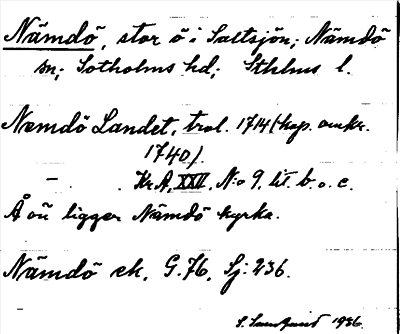 Nämdö, stor ö i Saltsjön; Nämdö
sn; Sotholms hd; Sthlms l.
Næmdö Landet, trol. 1714 (kop. omkr.
1740).
– . Kr A, XXVI, N:o 9, lit. b. o. c.
Å ön ligger Nämdö kyrka.
Nämdö ek, G. 76, Sj: 236.
1936.